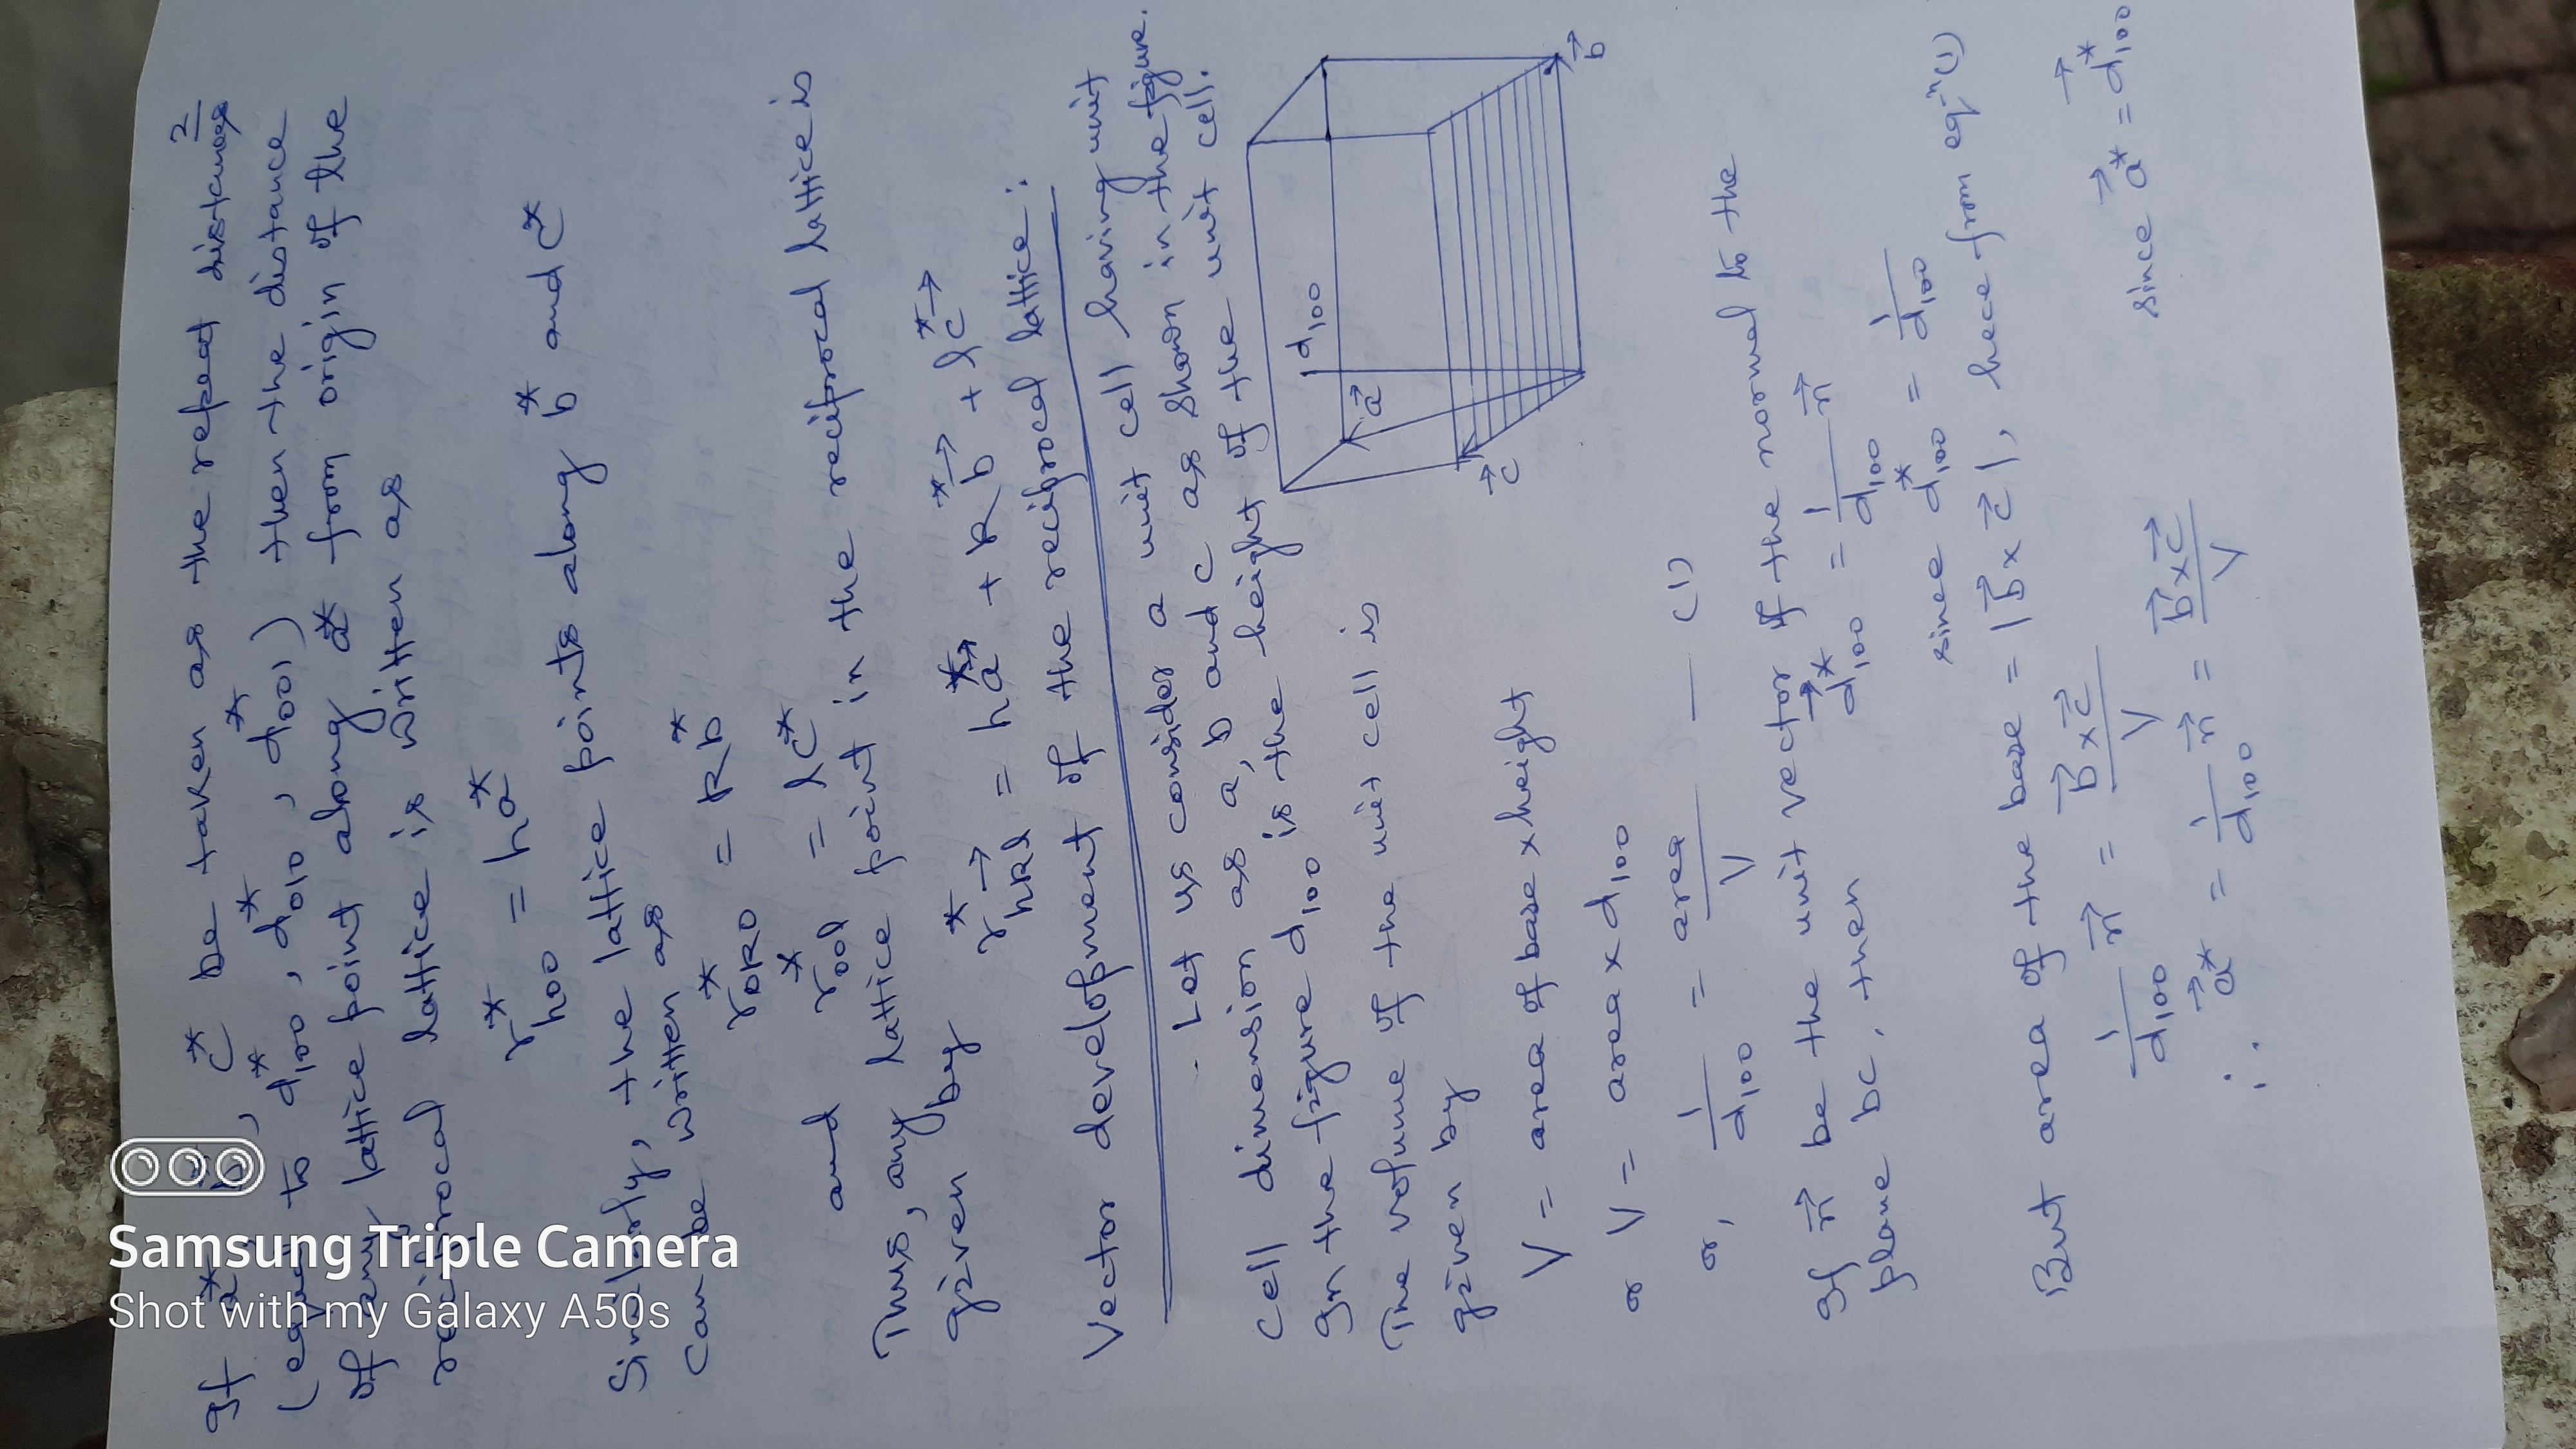 2
If a*, b*, c* be taken as the repeat distances
(equal to d*100, d*010, d*001) then the distance
of any lattice point along a* from origin of the
reciprocal lattice is written as
r*h00 = ha*
Similarly, the lattice points along b* and c*
can be written as
r*0k0 = kb*
and r*00l = lc*
Thus, any lattice point in the reciprocal lattice is
given by r*→hkl = ha*→ + kb*→ + lc*→
Vector development of the reciprocal lattice:
Let us consider a unit cell having unit
cell dimension as a, b and c as shown in the figure.
In the figure d100 is the height of the unit cell.
The volume of the unit cell is
given by
V = area of base × height
or V = area × d100
or, 1/d100 = area/V — (1)
d100
a→
b→
c→
If n→ be the unit vector of the normal to the
plane bc, then d→*100 = 1/d100 n→
since d*100 = 1/d100
But area of the base = |b→ × c→|, hece from eq-n(1)
1/d100 n→ = b→ × c→/V
∴ a→* = 1/d100 n→ = b→ × c→/V since a→* = d→*100
Samsung Triple Camera
Shot with my Galaxy A50s